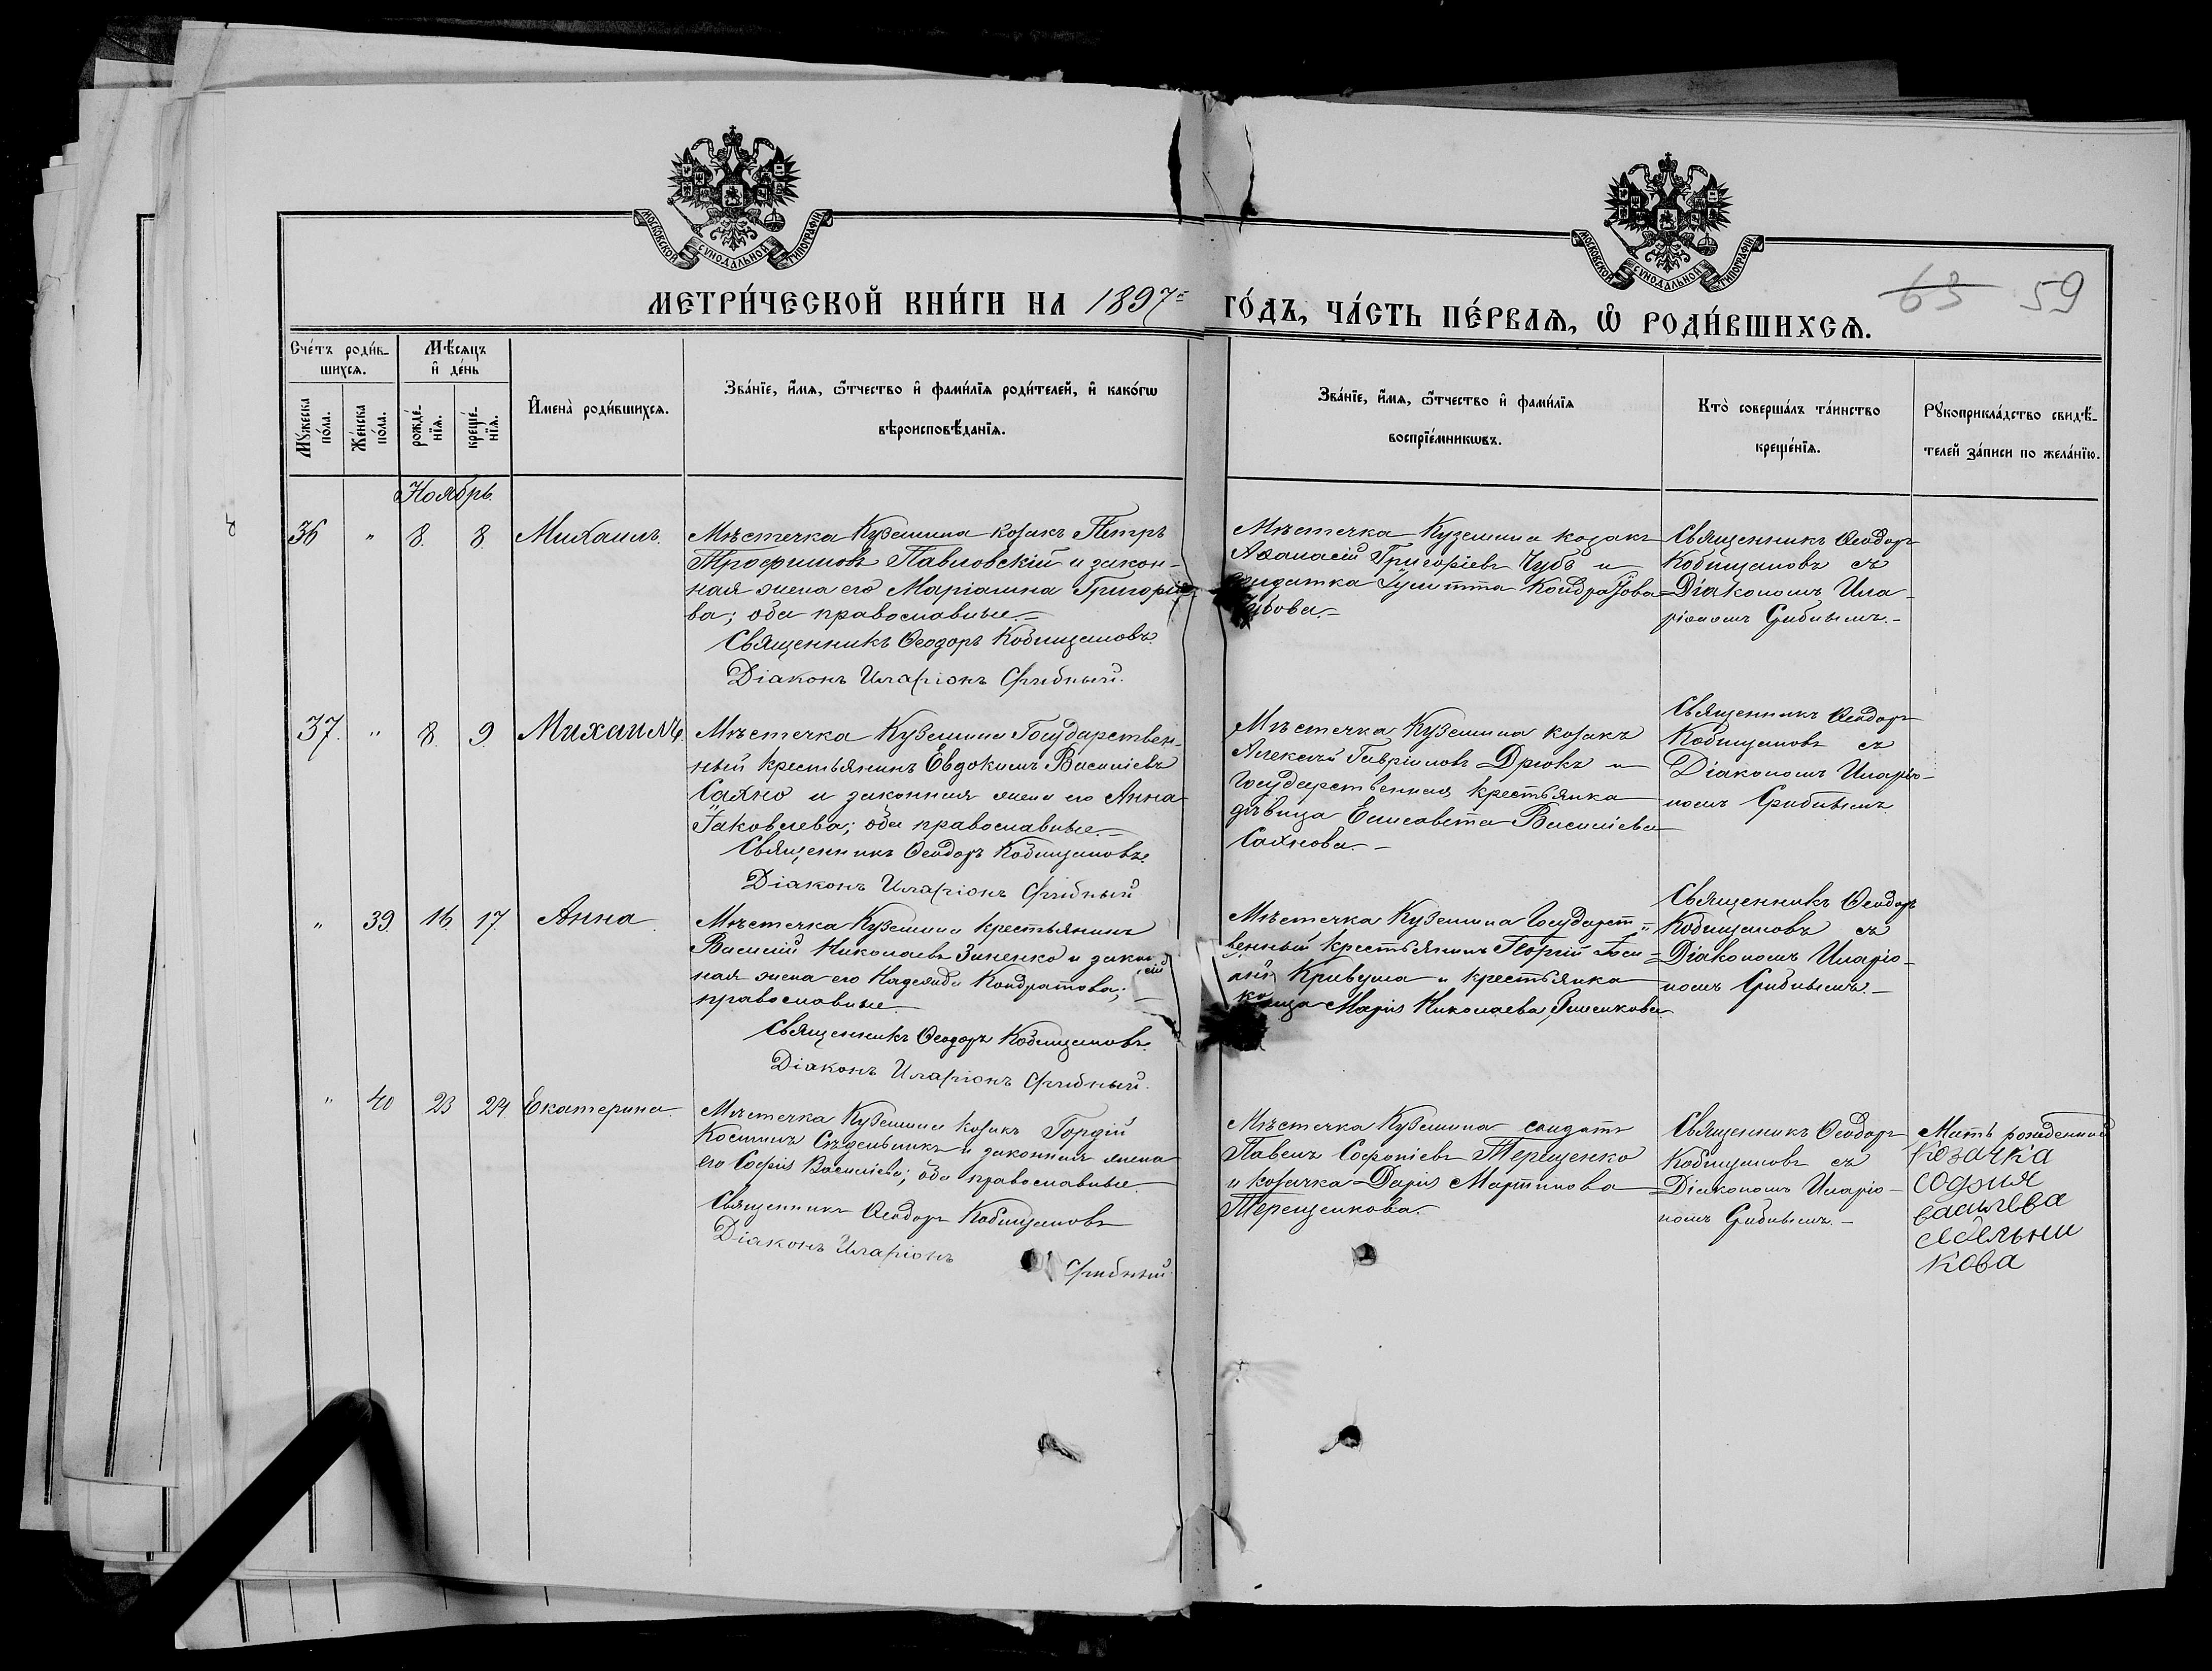 МОСКОВСКОЙ СѴНОДАЛЬНОЙ ТИПОГРАФІИ
МОСКОВСКОЙ СѴНОДАЛЬНОЙ ТИПОГРАФІИ
МЕТРИ́ЧЕСКОЙ КНИ́ГИ НА 1897 ГО́ДЪ, ЧА́СТЬ ПЕ́РВАѦ, Ѡ҆ РОДИ́ВШИХСѦ.
63 59
Сче́тъ роди́в-
шихсѧ.
Мꙋ́жеска по́ла.
Же́нска по́ла.
Мѣ́сѧцъ
и҆ де́нь
рожде́-
нїѧ.
креще́-
нїѧ.
И҆мена̀ роди́вшихсѧ.
Зва́нїе, и҆́мѧ, ѻ҆́тчество и҆ фами́лїѧ роди́телей, и҆ како́гѡ
вѣроисповѣ́данїѧ.
Зва́нїе, и҆́мѧ, ѻ҆́тчество и҆ фами́лїѧ
воспрїе́мникѡвъ.
Кто̀ соверша́лъ та́инство
креще́нїѧ.
Рꙋкоприкла́дство свидѣ́-
телей за́писи по жела́нїю.
Ноябрь.
36 " 8. 8. Михаилъ.
Мѣстечка Куземина козакъ Петръ
Трофимовъ Павловскій и закон-
ная жена его Маріанна Григоріе-
ва; оба православные.-
Священникъ Ѳеодоръ Кобищановъ.
Діаконъ Иларіонъ Грибный.
Мѣстечка Куземина козакъ
Аѳанасій Григоріевъ Чубъ и
солдатка Іулитта Кондратова
Чубова.-
Священникъ Ѳеодоръ
Кобищановъ съ
Діакономъ Ила-
ріономъ Грибнымъ.-
37. " 8. 9. Михаилъ.
Мѣстечка Куземина Государствен-
ный крестьянинъ Евдокимъ Василіевъ
Сахно и законная жена его Анна
Іаковлева; оба православные.-
Священникъ Ѳеодоръ Кобищановъ.
Діаконъ Иларіонъ Грибный
Мѣстечка Куземина козакъ
Алексѣй Гавріиловъ Дрюкъ и
Государственная крестьянка
дѣвица Елисавета Василіева
Сахнова.-
Священникъ Ѳеодоръ
Кобищановъ съ
Діакономъ Иларіо-
номъ Грибнымъ
" 39. 16. 17. Анна.
Мѣстечка Куземина крестьянинъ
Василій Николаевъ Зиненко и закон-
ная жена его Надежда Кондратова;
православные.
Священникъ Ѳеодоръ Кобищановъ.
Діаконъ Иларіонъ Грибный.
Мѣстечка Куземина Государст-
венный крестьянинъ Георгій
Кривуша и крестьянка
Марія Николаева Зиненкова
Священникъ Ѳеодоръ
Кобищановъ съ
Діакономъ Иларіо-
номъ Грибнымъ.-
" 40 23 24. Екатерина.
Мѣстечка Куземина козакъ Гордій
Косминъ Сѣдельникъ и законная жена
его Софія Василіева; оба православные.
Священникъ Ѳеодоръ Кобищановъ
Діаконъ Иларіонъ
Грибный.
Мѣстечка Куземина солдатъ
Павелъ Софоніевъ Терещенко
и козачка Дарія Мартинова
Терещенкова.-
Священникъ Ѳеодоръ
Кобищановъ съ
Діакономъ Иларіо-
номъ Грибнымъ.-
Мать рожденной
козачка
софия
васильева
седельни
кова